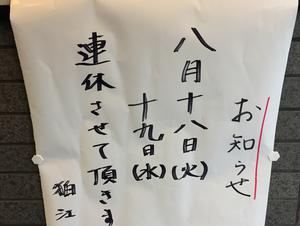 お知らせ
八月十八日(火)
十九日(水)
連休させて頂きます
狛江